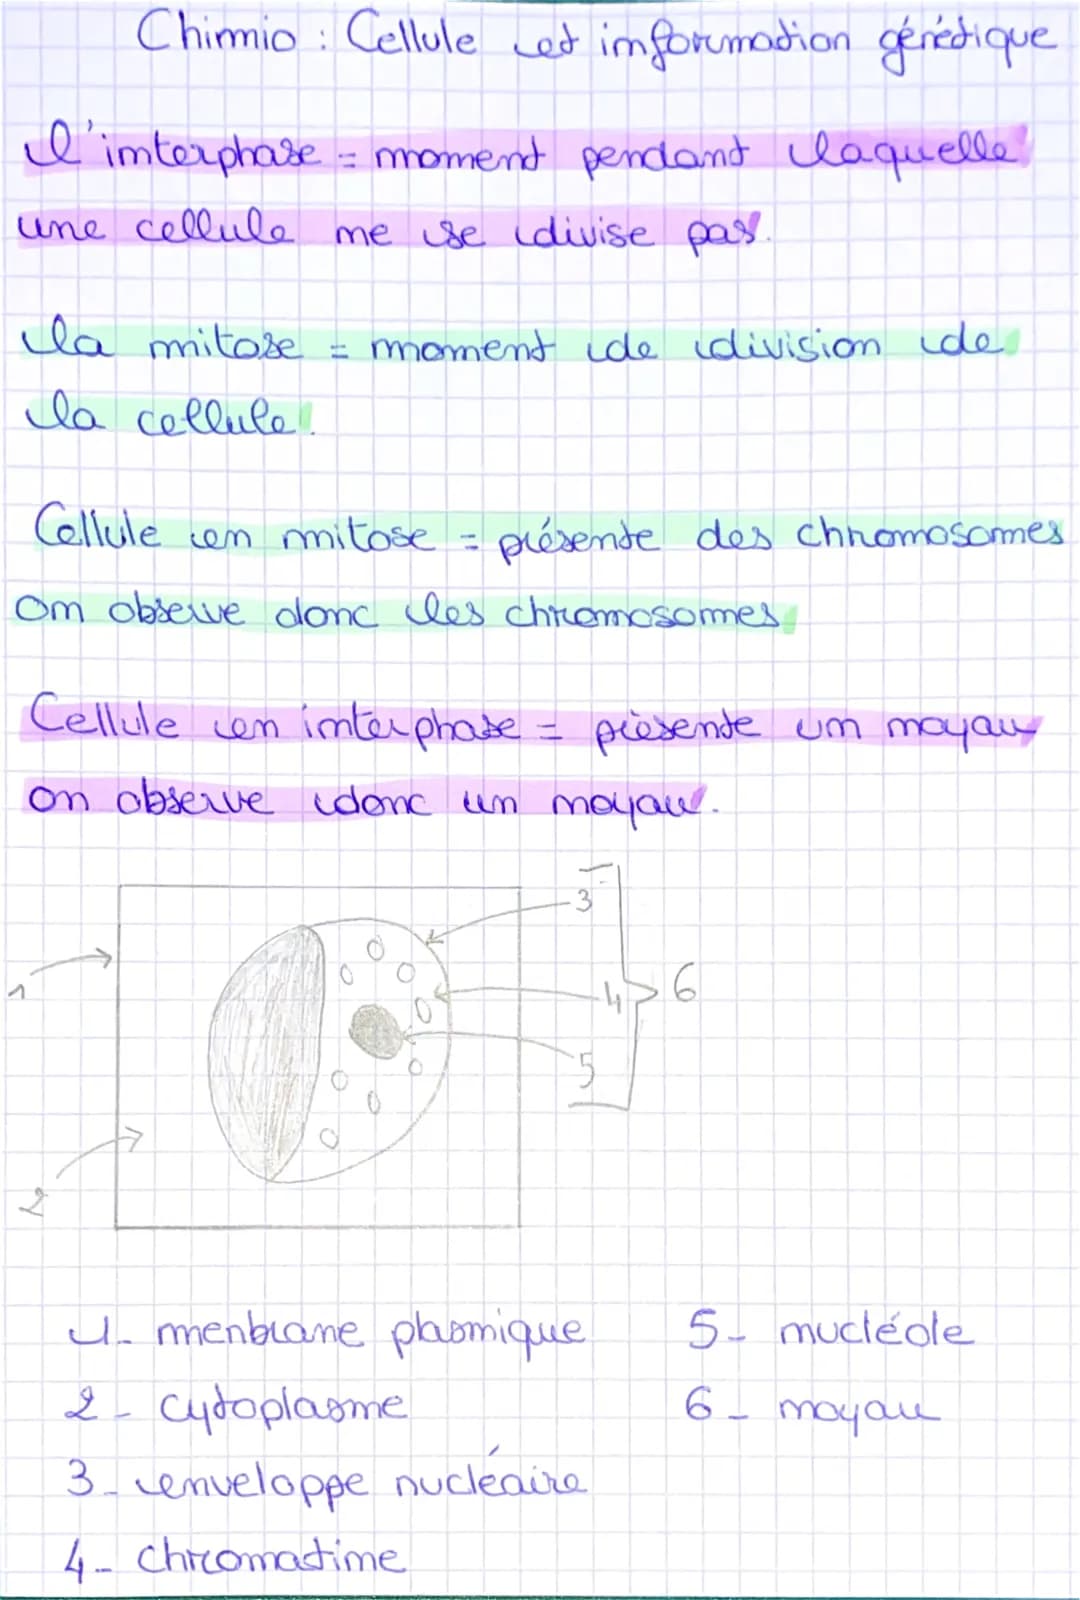 Chimio : Cellule et information génétique
l'interphase = moment pendant laquelle
une cellule ne se divise pas.
la mitose = moment de division de
la cellule.
Cellule en mitose = présente des chromosomes
on observe donc les chromosomes.
Cellule en interphase = présente un noyau
on observe donc un noyau.
3
1
4
6
5
2
1- menbrane plasmique
5- nucléole
2- cytoplasme
6- noyau
3- enveloppe nucléaire
4- chromatine